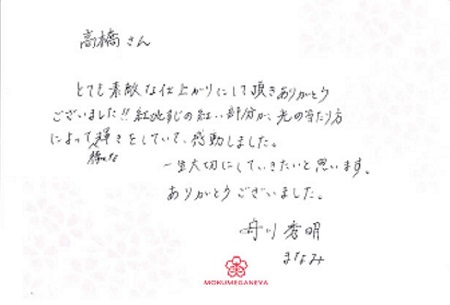 高橋さん
とても素敵な仕上がりにして頂きありがとう
ございました!! 紅地すじの紅い部分が、光の当たり方
によって様々な輝きをしていて、感動しました。
一生大切にしていきたいと思います。
ありがとうございました。
舟川 秀明
まなみ
MOKUMEGANEYA